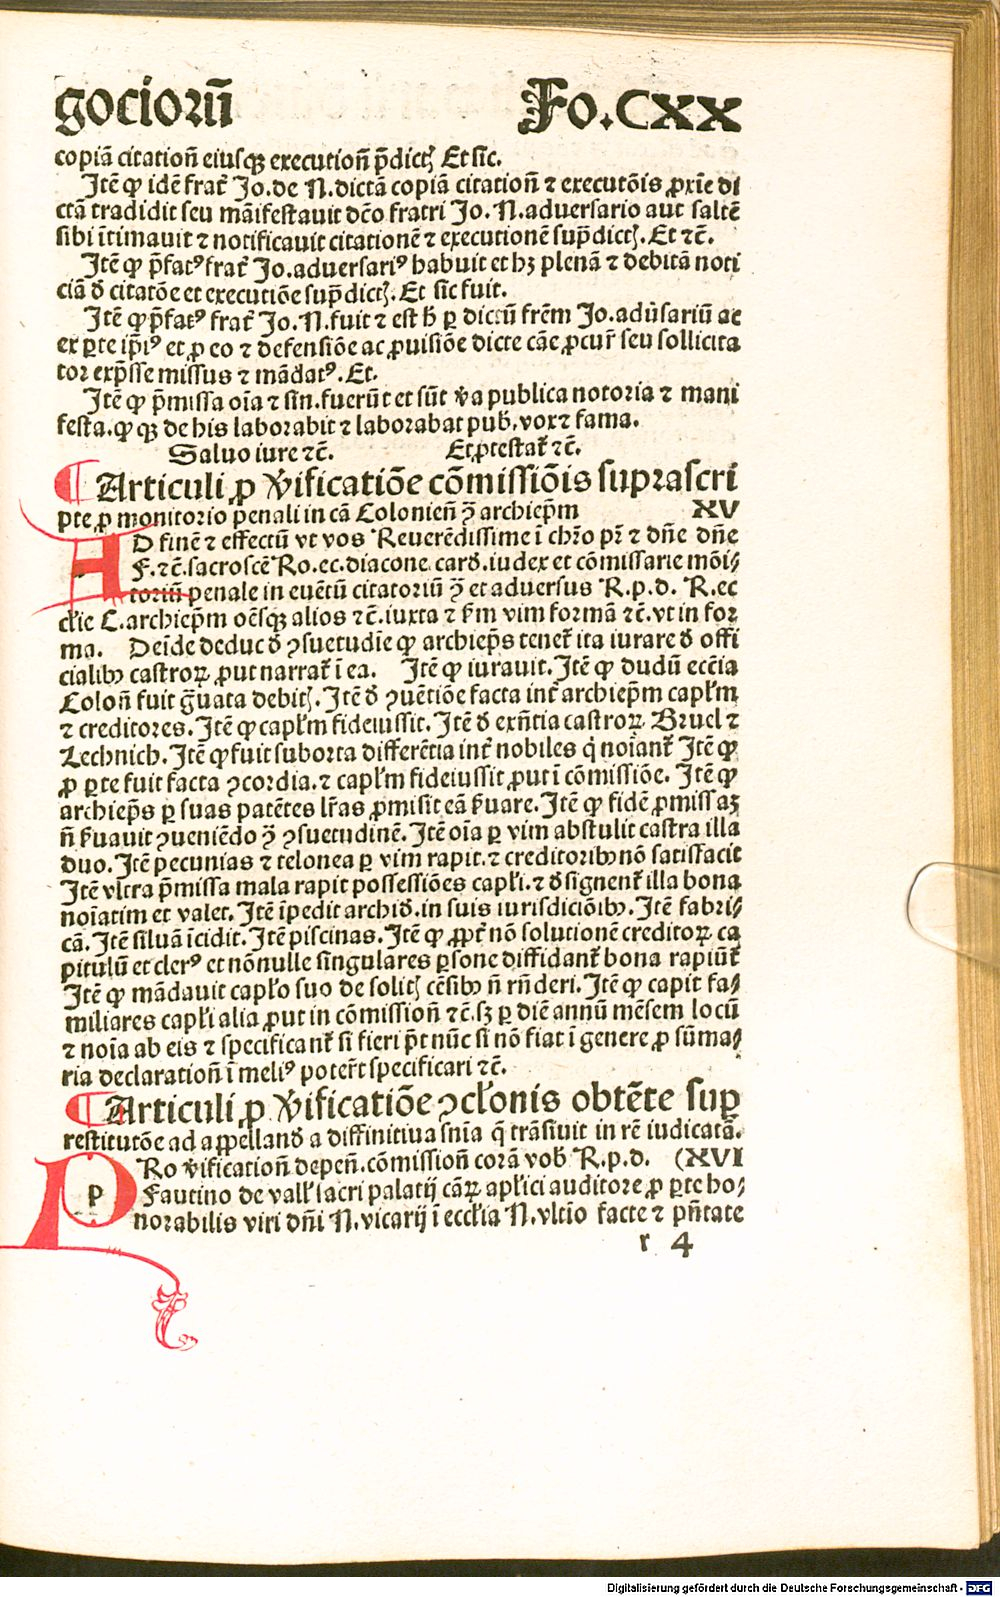 gocioꝝ̄ Fo.CXX
copiā citatioñ eiusqꝫ executioñ p̄dict̄ Et sic.
Itē ꝙ idē frat̄ Jo.de N.dictā copiā citatioñ ⁊ executōis ꝓxīe di
ctā tradidit seu māifestavit dc̄o fratri Jo.N.adversario aut saltē
sibi ītimavit ⁊ notificavit citationē ⁊ executionē sup̄dict̄.Et ⁊c̄.
Itē ꝙ p̄fatꝰ frat̄ Jo.adversariꝰ habuit et hꝫ plenā ⁊ debitā noti
ciā ď citatōe et executiōe sup̄dict̄.Et sic fuit.
Itē ꝙ p̄fatꝰ frat̄ Jo.N.fuit ⁊ est ħ ꝑ dictū frēm Jo.adṽsariū ac
ex ꝑte ip̄iꝰ et ꝓ eo ⁊ defensiōe ac ꝓuisiōe dicte cāe ꝓcur̄ seu sollicita
tor exp̄sse missus ⁊ mādatꝰ.Et.
Itē ꝙ p̄missa oīa ⁊ sin.fuerūt et sūt ṽa publica notoria ⁊ mani
festa.ꝙ qꝫ de his laborabit ⁊ laborabat pub̄.vox⁊ fama.
Salvo iure ⁊c̄. Et ꝓtestat̄ ⁊c̄.
Articuli ꝓ v̓ificatiōe cōmissiōis suprascri
pte ꝓ monitorio penali in cā Colonieñ ꝯ̄ archiep̄m XV
AD finē ⁊ effectū vt vos Reverēdissime ī chr̄o pr̄ ⁊ dn̄e dn̄e
F.⁊c̄.sacroscē Ro.ec.diacone card.iudex et cōmissarie mōi⸗
toriū penale in evētū citatoriū ꝯ̄ et adversus R.p.d. R.ec
cl̄ie C.archiep̄m oēsqꝫ alios ⁊c̄.iuxta ⁊ ẜm vim formā ⁊c̄.vt in for
ma. Deīde deduc ď ꝯsuetudīe ꝙ archiep̄s tenet̄ ita iurare ď offi
cialibꝰ castroꝝ ꝓut narrat̄ ī ea. Itē ꝙ iuravit.Itē ꝙ dudū ecc̄ia
Coloñ fuit g̃uata debit̄.Itē ď ꝯuētiōe facta int̄ archiep̄m capl̄m
⁊ creditores.Itē ꝙ capl̄m fideiussit.Itē ď exn̄tia castroꝝ Bruel ⁊
Lechnich.Itē ꝙ fuit suborta differētia int̄ nobiles q̇ noīant̄ Itē ꝙ
ꝓ ꝑte fuit facta ꝯcordia.⁊ capl̄m fideiussit ꝓut ī cōmissiōe. Itē ꝙ
archiep̄s ꝑ suas patētes lr̄as ꝓmisit eā ẜuare.Itē ꝙ fidē ꝓmissaꝫ
ñ ẜuavit ꝯueniēdo ꝯ̄ ꝯsuetudinē.Itē oīa ꝑ vim abstulit castra illa
duo.Itē pecunias ⁊ telonea ꝑ vim rapit.⁊ creditoribꝰ nō satisfacit
Itē vltra p̄missa mala rapit possessiōes capl̄i.⁊ ďsignent̄ illa bona
noīatim et valet.Itē īpedit archiď.in suis iurisdiciōibꝰ.Itē fabri⸗
cā.Itē silvā īcidit.Itē piscinas.Itē ꝙ ꝓpt̄ nō solutionē creditoꝝ ca
pitulū et clerꝰ et nōnulle singulares ꝑsone diffidant̄ bona rapiūt̄
Itē ꝙ mādavit capl̄o suo de solit̄ cēsibꝰ ñ rn̄deri.Itē ꝙ capit fa⸗
miliares capl̄i alia ꝓut in cōmissioñ ⁊c̄.sꝫ ꝑ diē annū mēsem locū
⁊ noīa ab eis ⁊ specificant̄ si fieri p̄t nūc si nō fiat ī genere ꝓ sūma⸗
ria declaratioñ ī meliꝰ poter̄t specificari ⁊c̄.
Articuli ꝓ v̓ificatiōe ꝯcl̄onis obtēte suꝑ
restitutōe ad appellanď a diffinitiva sn̄ia q̄ trāsivit in rē iudicatā.
PRo v̓ificatioñ depeñ.cōmissioñ corā vob̄ R.p.d. (XVI
Fautino de vall̄ sacri palatij cāꝝ apl̄ici auditore ꝓ ꝑte ho⸗
norabilis viri dn̄i N.vicarij ī eccl̄ia N.vltio facte ⁊ pn̄tate
r 4
Digitalisierung gefördert durch die Deutsche Forschungsgemeinschaft - DFG